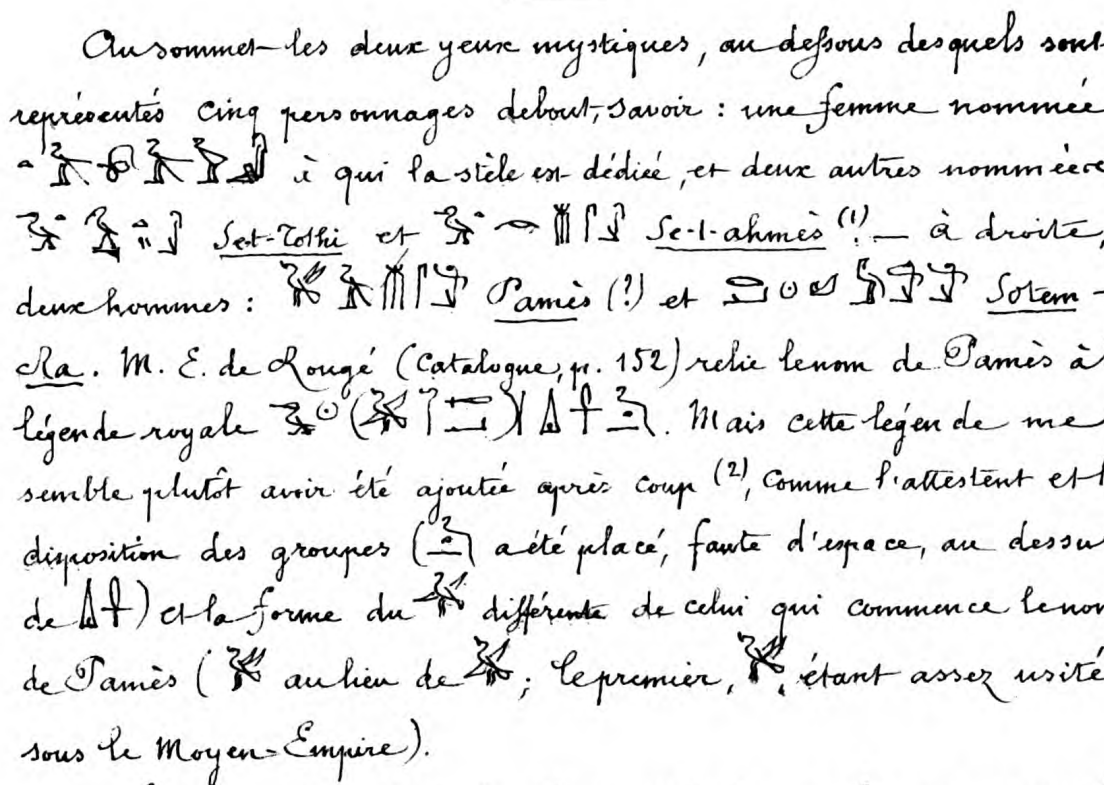 Au sommet les deux yeux mystiques, au dessous desquels sont
représentés cinq personnages debout, savoir : une femme nommée
à qui la stèle est dédiée, et deux autres nommées
Set-Tothi et Se-t-ahmès (1) — à droite,
deux hommes : Pamès (?) et Sotem-
Ra. M. E. de Rougé (Catalogue, p. 152) relie le nom de Pamès à
légende royale . Mais cette légende me
semble plutôt avoir été ajoutée après coup (2), comme l'attestent et l
disposition des groupes ( a été placé, faute d'espace, au dessu
de ) et la forme du différente de celui qui commence le nom
de Pamès ( au lieu de ; le premier, , étant assez usité
sous le Moyen-Empire).